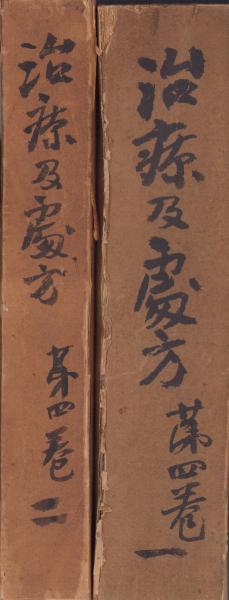 治療及處方
第四巻
一
治療及處方
第四巻
二